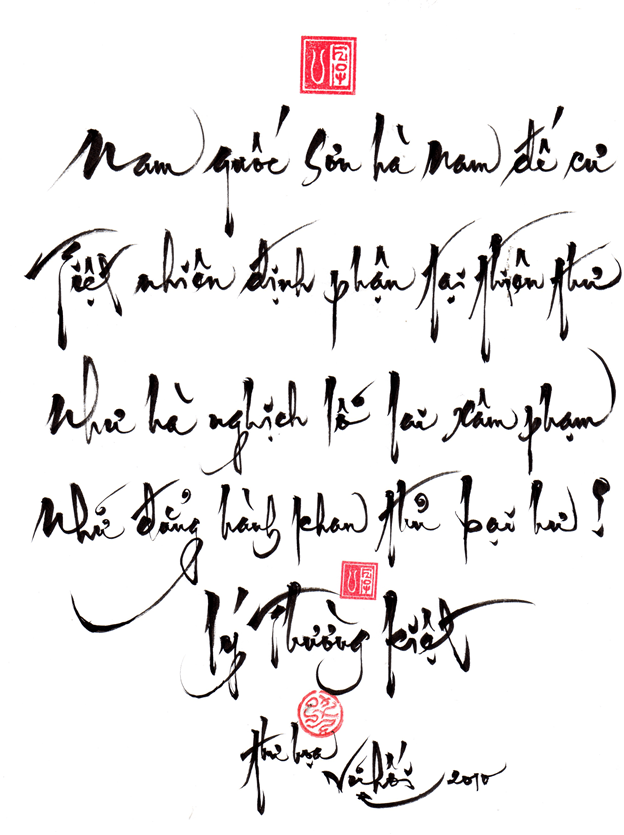 Nam quốc sơn hà Nam đế cư
Tiệt nhiên định phận tại thiên thư
Như hà nghịch lỗ lai xâm phạm
Nhữ đẳng hành khan thủ bại hư !
Lý Thường Kiệt
thư họa
Vũ Hối 2010